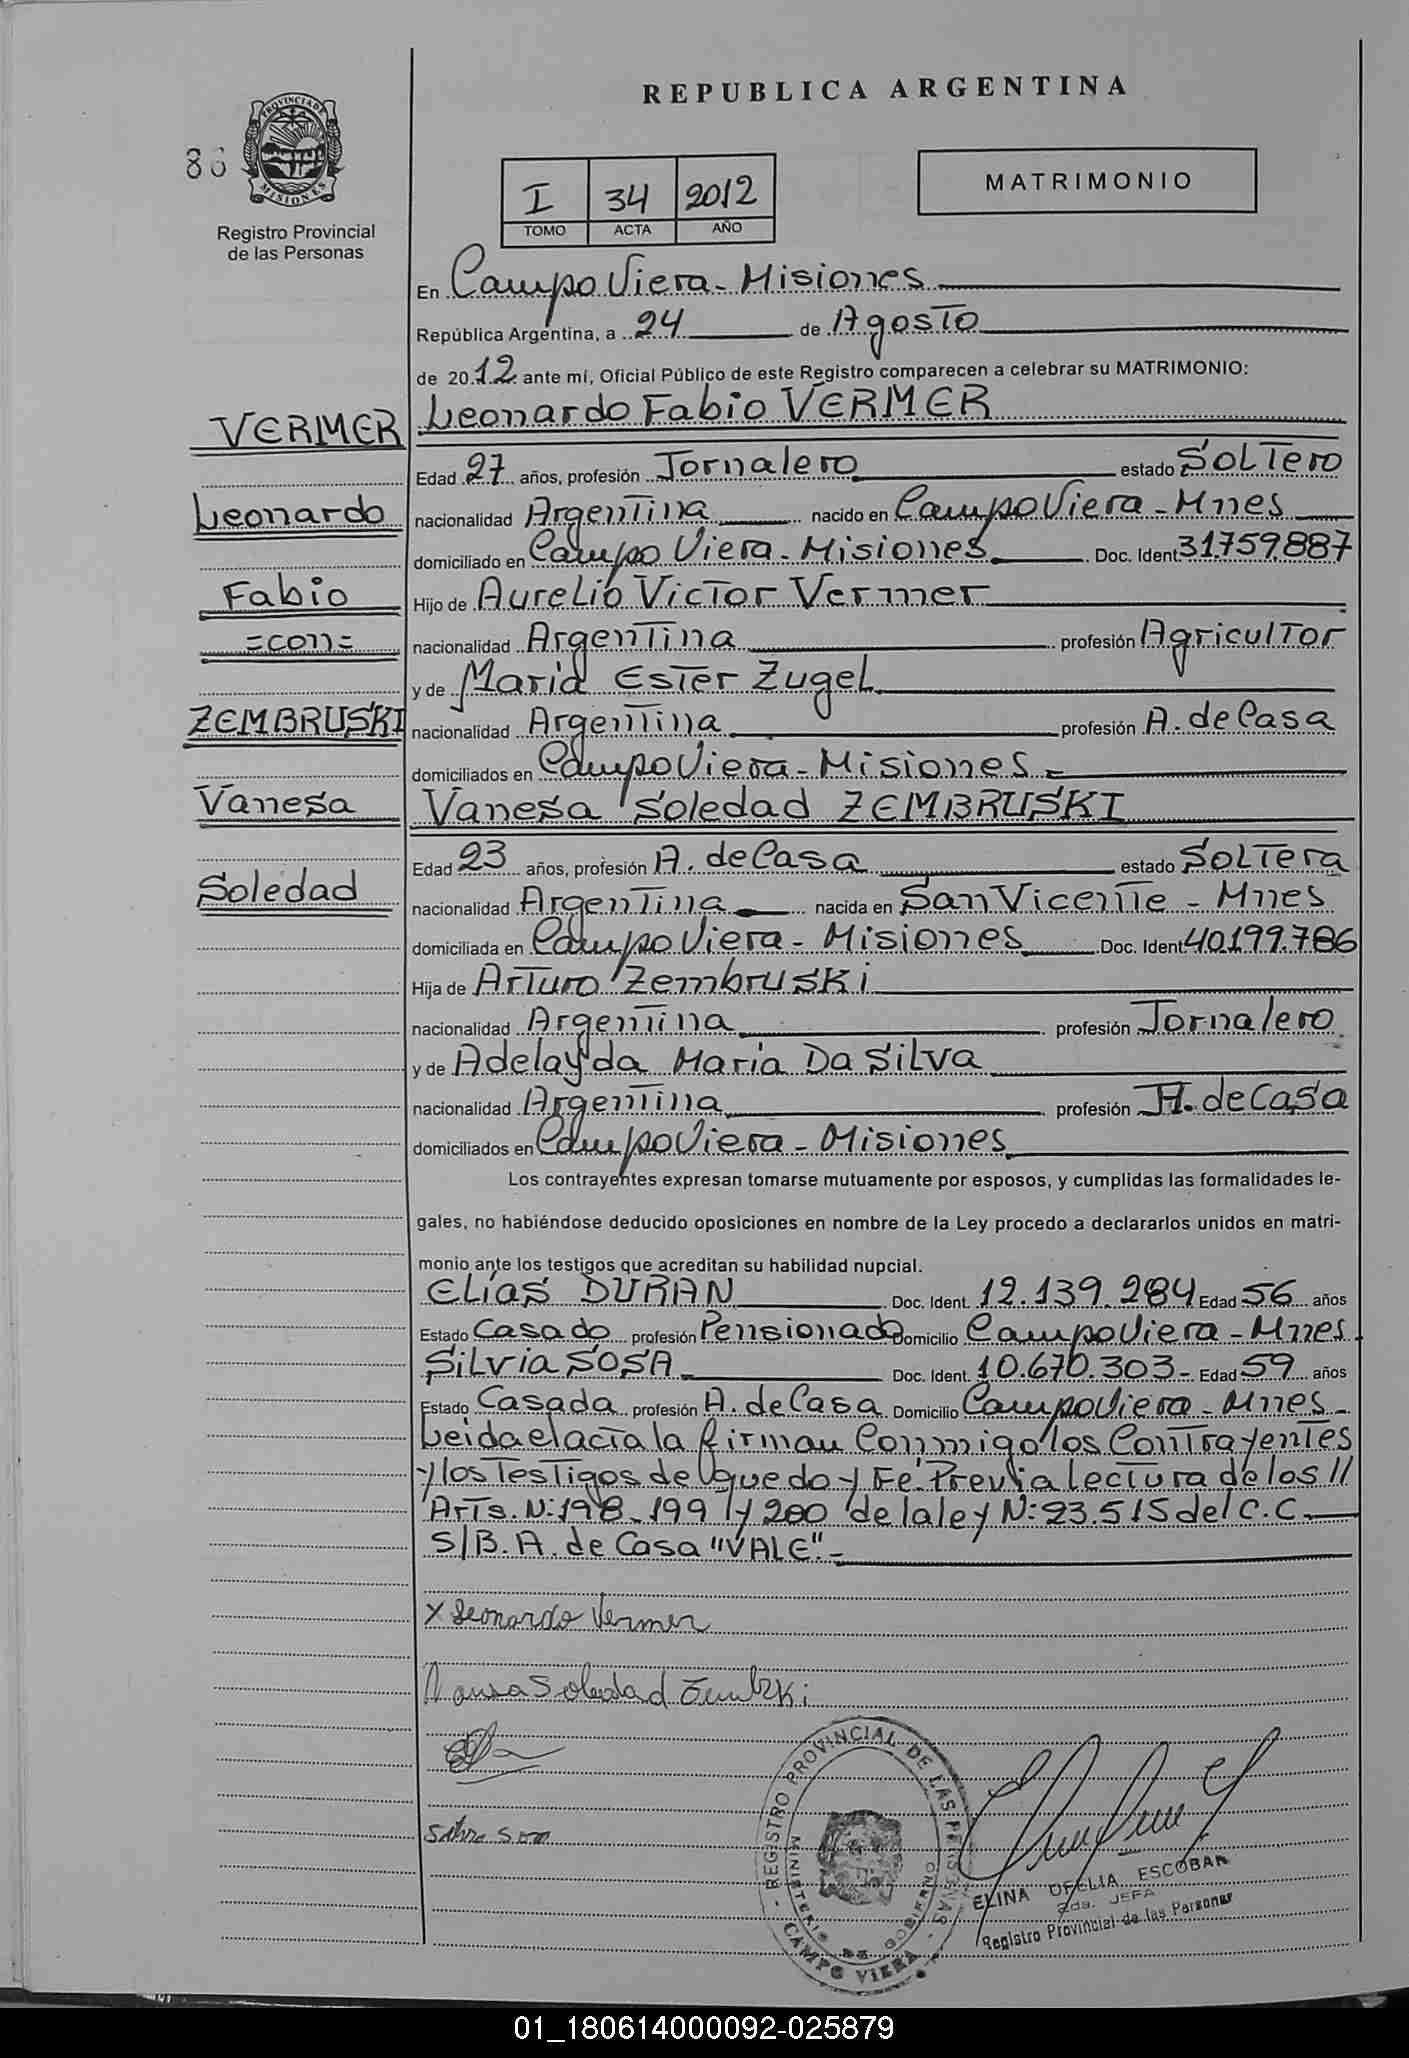 REPUBLICA ARGENTINA
86
PROVINCIA DE MISIONES
Registro Provincial
de las Personas
I 34 2012
TOMO ACTA AÑO
MATRIMONIO
En Campo Viera - Misiones
República Argentina, a 24 de Agosto
de 2012 ante mí, Oficial Público de este Registro comparecen a celebrar su MATRIMONIO:
VERMER
Leonardo
Fabio
=con=
ZEMBRUSKI
Vanesa
Soledad
Leonardo Fabio VERMER
Edad 27 años, profesión Jornalero estado SOLTero
nacionalidad Argentina nacido en Campo Viera - Mnes
domiciliado en Campo Viera - Misiones Doc. Ident 31.759.887
Hijo de Aurelio Victor Vermer
nacionalidad Argentina profesión Agricultor
y de Maria Ester Zugel
nacionalidad Argentina profesión A. de Casa
domiciliados en Campo Viera - Misiones =
Vanesa Soledad ZEMBRUSKI
Edad 23 años, profesión A. de Casa estado SOLTera
nacionalidad Argentina nacida en San Vicente - Mnes
domiciliada en Campo Viera - Misiones Doc. Ident 40.199.786
Hija de Arturo Zembruski
nacionalidad Argentina profesión Jornalero
y de Adelayda Maria Da Silva
nacionalidad Argentina profesión A. de Casa
domiciliados en Campo Viera - Misiones
Los contrayentes expresan tomarse mutuamente por esposos, y cumplidas las formalidades le-
gales, no habiéndose deducido oposiciones en nombre de la Ley procedo a declararlos unidos en matri-
monio ante los testigos que acreditan su habilidad nupcial.
Elías DURAN Doc. Ident. 12.139.284 Edad 56 años
Estado Casado profesión Pensionado Domicilio Campo Viera - Mnes
Silvia SOSA Doc. Ident. 10.670.303- Edad 59 años
Estado Casada profesión A. de Casa Domicilio Campo Viera - Mnes -
Leida el acta la firman Conmigo los Contrayentes
y los Testigos de que doy Fe. Previa lectura de los //
Arts. N: 198 - 199 y 200 de la ley N: 23.515 del C.C.
S/B. A. de Casa "VALE".-
X Leonardo Vermer
Soledad
REGISTRO PROVINCIAL DE LAS PERSONAS
MINISTERIO DE GOBIERNO
CAMPO VIERA
ELINA OFELIA ESCOBAR
2da. JEFA
Registro Provincial de las Personas
01_180614000092-025879